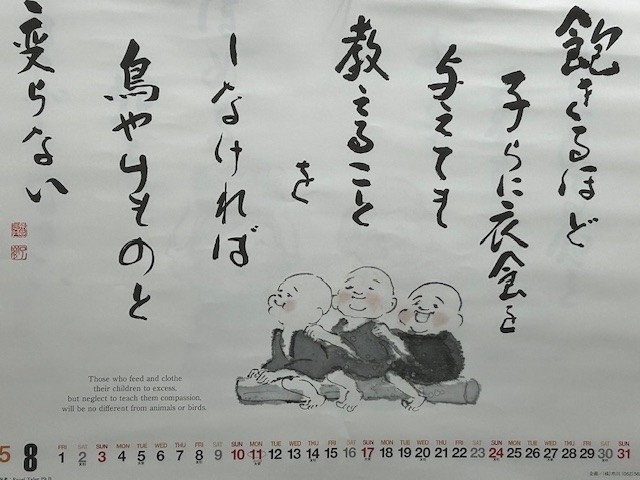 飽きるほど
子らに衣食を
与えても
教えること
を
しなければ
鳥やけものと
変らない
Those who feed and clothe
their children to excess,
but neglect to teach them compassion,
will be no different from animals or birds.
5 8
FRI SAT SUN MON TUE WED THU FRI SAT SUN MON TUE WED THU FRI SAT SUN MON TUE WED THU FRI SAT SUN MON TUE WED THU FRI SAT SUN
1 2 3 4 5 6 7 8 9 10 11 12 13 14 15 16 17 18 19 20 21 22 23 24 25 26 27 28 29 30 31